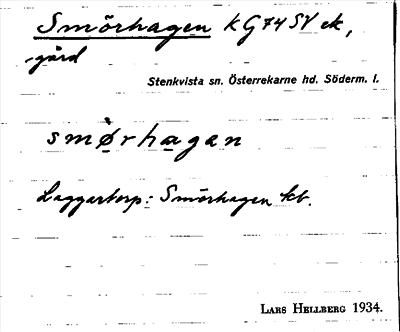 Smörhagen kG74SV ek,
gård
Stenkvista sn. Österrekarne hd. Söderm. l.
smø̀rhagan
Laggartorp: Smörhagen kt.
LARS HELLBERG 1934.